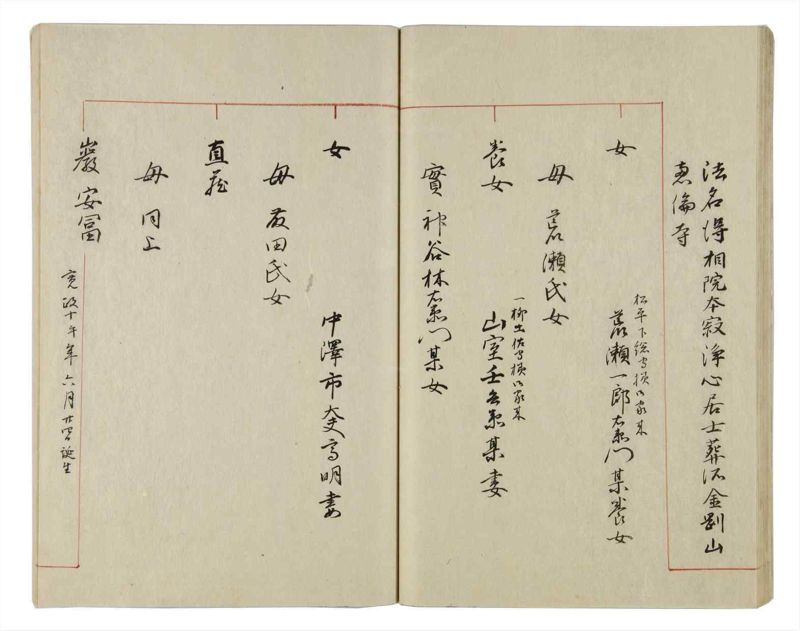 法名得相院本寂浄心居士葬于金剛山
恵倫寺
女
松平下総守様御家来
荒瀬一郎右衛門某養女
母 荒瀬氏女
養女
一柳土佐守様御家来
山室壬兵衛某妻
實神谷林右衛門某女
女
中澤市太夫高明妻
母 友田氏女
直茂
母 同上
巖 安冨
寛政十午年六月廿四日誕生